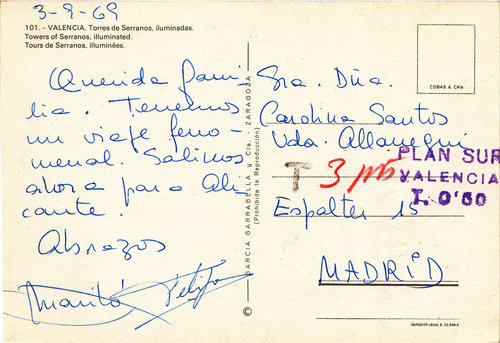 3-9-69
101. - VALENCIA. Torres de Serranos, iluminadas.
Towers of Serranos, illuminated.
Tours de Serranos, illuminées.
Querida fami-
lia. Tenemos
un viaje feno-
menal. Salimos
ahora para Ali-
cante.
Abrazos
Felipe
GARCIA GARRABELLA y Cía. - ZARAGOZA
(Prohibida la Reproducción)
©
COBAS & Cía
Sra. Dña.
Carolina Santos
Vda.
T 3 pts
PLAN SUR
VALENCIA
T. 0'60
Espalter 15
MADRID
DEPOSITO LEGAL B.